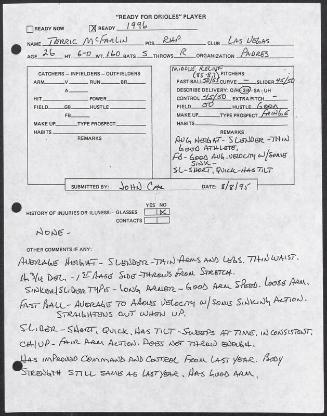 "READY FOR ORIOLES" PLAYER
READY NOW
READY 1996
NAME TERRIC McFARLIN POS. RHP CLUB LAS VEGAS
AGE 26 HT 6-0 WT 160 BATS S THROWS R ORGANIZATION PADRES
CATCHERS - INFIELDERS - OUTFIELDERS
ARM RUN ARM
HIT POWER
FIELD GB HUSTLE
FB
MAKE UP TYPE PROSPECT
HABITS
REMARKS
MIDDLE RELIEF PITCHERS
FAST BALL CURVE - SLIDER 45/50
DESCRIBE DELIVERY: O/H 3/4 SA : UH
CONTROL 45/50 EXTRA PITCH -
FIELD 50 HUSTLE GOOD
MAKE-UP TYPE PROSPECT FRINGE
HABITS
REMARKS
AVG HEIGHT - SLENDER - THIN
GOOD ATHLETE.
FB - GOOD AVG. VELOCITY W/SOME
SINK -
SL - SHORT, QUICK - HAS TILT
SUBMITTED BY: JOHN COX DATE: 8/8/95
YES NO
HISTORY OF INJURIES OR ILLNESS - GLASSES X
CONTACTS
NONE -
OTHER COMMENTS IF ANY:
AVERAGE HEIGHT - SLENDER - THIN ARMS AND LEGS. THIN WAIST.
H 3/4 DEL. - 1ST BASE SIDE - THROWS FROM STRETCH.
SINKER/SLIDER TYPE - LONG ARMER - GOOD ARM SPEED. LOOSE ARM.
FAST BALL - AVERAGE TO ABOVE VELOCITY W/SOME SINKING ACTION.
STRAIGHTENS OUT WHEN UP.
SLIDER - SHORT, QUICK, HAS TILT - SWEEPS AT TIME, INCONSISTENT.
CH/UP - FAIR ARM ACTION. DOES NOT THROW ENOUGH.
HAS IMPROVED COMMAND AND CONTROL FROM LAST YEAR. BODY
STRENGTH STILL SAME AS LAST YEAR. HAS GOOD ARM.